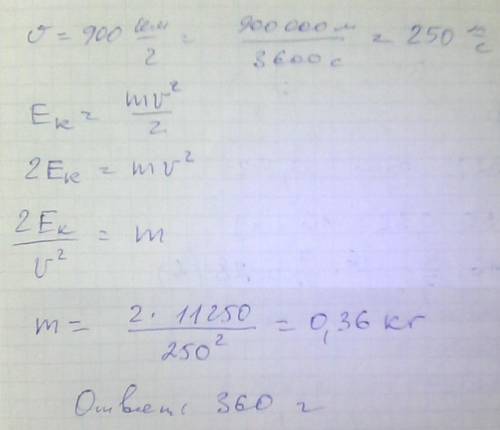 v = 900 км/г = 900 000 м / 3600 с = 250 м/с
Eк = mv²/2
2Eк = mv²
2Eк / v² = m
m = 2 · 11250 / 250² = 0,36 кг
Ответ: 360 г